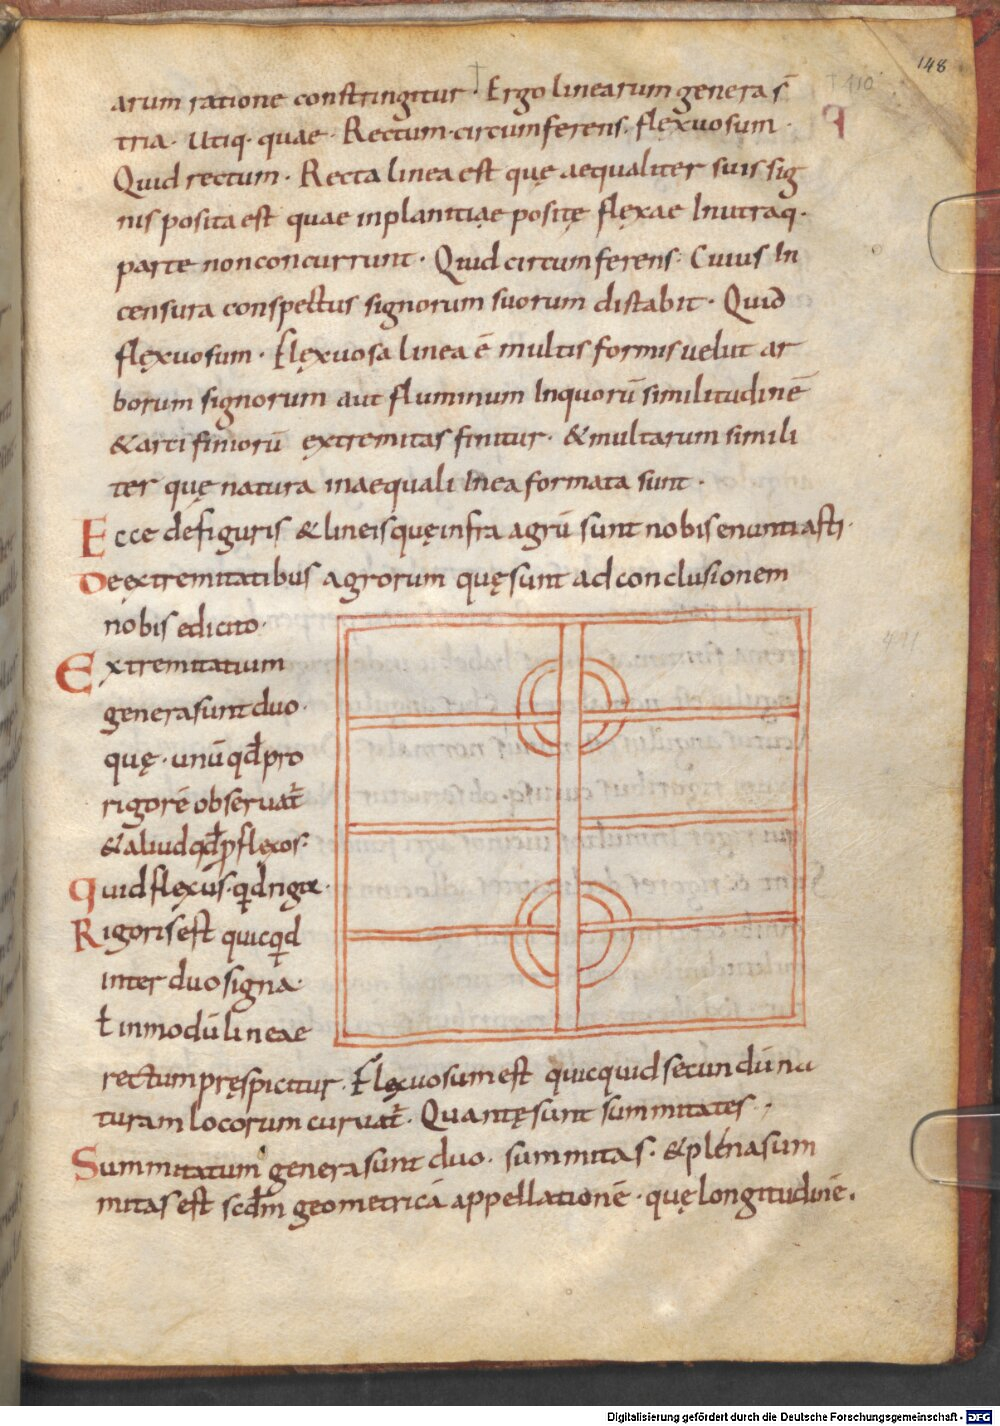 148
arum ratione constringitur · Ergo linearum genera s̄
tria · Utiq· quae · Rectum · circumferens · flexuosum ·
Quid rectum · Recta linea est quę aequaliter suis sig
nis posita est quae inplanitiae positę flexae Inutraq·
parte nonconcurrunt · Quid circumferens · Cuius In
censura conspectus signorum suorum distabit · Quid
flęxuosum · Flęxuosa linea ē multis formis velut ar
borum signorum aut fluminum Inquorū similitudinē
& arcifiniorū extremitas finitur · & multarum simili
ter quę natura inaequali linea formata sunt ·
Ecce defiguris & lineis quę infra agrū sunt nobis enuntiasti ·
De extremitatibus agrorum quę sunt ad conclusionem
nobis edicito ·
Extremitatium
genera sunt duo ·
quę · unū qđ pro
rigorē observat̄
& aliud qđ p flexos ·
Quid flexus · qđ rigor ·
Rigoris est quicqđ
inter duo signa ·
ł inmodū lineae
rectum pręspicitur · Flexuosum est quicquid secundū na
turam locorum curvat̄ · Quantę sunt summitates ·
Summitatum genera sunt duo · summitas · & plena sum
mitas est scđm geometricā appellationē · quę longitudinē ·
Digitalisierung gefördert durch die Deutsche Forschungsgemeinschaft - DFG